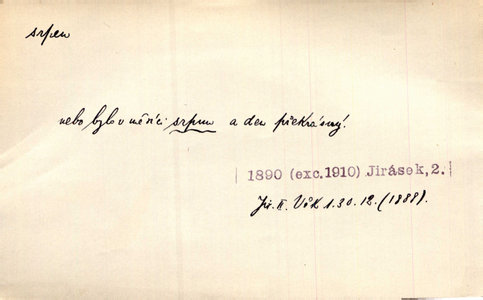 srpen
nebo bylo v měsíci srpnu a den překrásný!
1890 (exc.1910) Jirásek,2.
Jir. II. Věk 1.30.12.(1888).